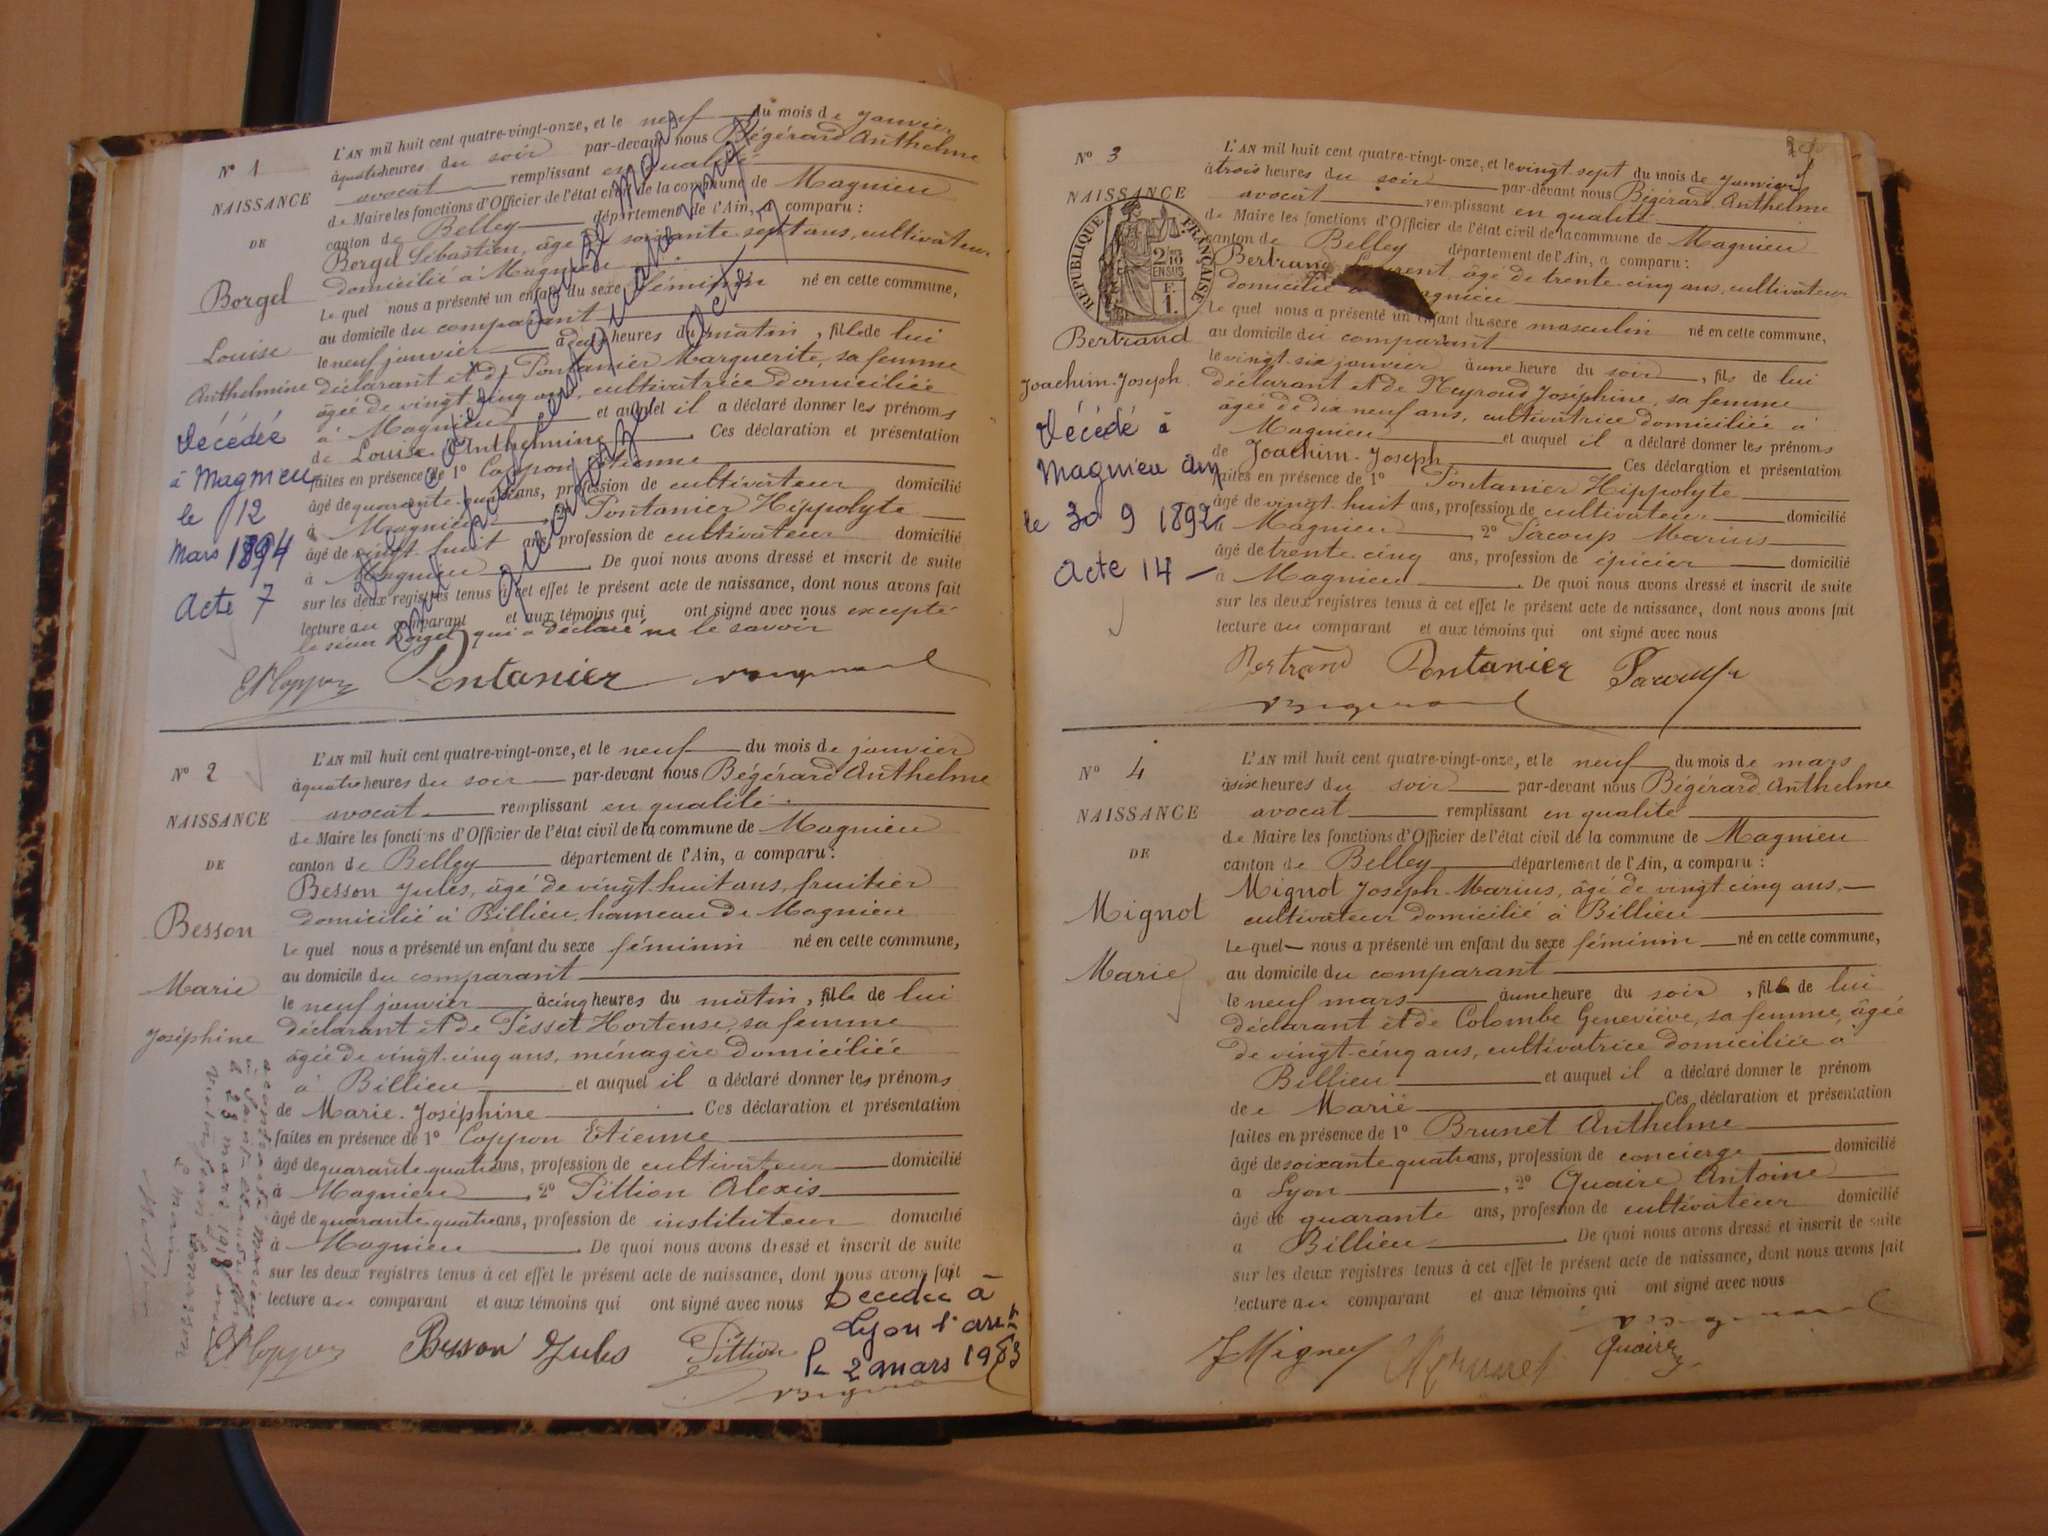 N° 1
NAISSANCE
DE
Borgel
Louise
Anthelmine
Décédée
à Magnieu
le 12
Mars 1894
Acte 7
L'AN mil huit cent quatre-vingt-onze, et le neuf du mois de janvier
à quatre heures du soir par-devant nous Bégérard Anthelme
avocat remplissant en qualité
de Maire les fonctions d'Officier de l'état civil de la commune de Magnieu
canton de Belley département de l'Ain, a comparu :
Borgel Sébastien, âgé de soixante sept ans, cultivateur
domicilié à Magnieu
Le quel nous a présenté un enfant du sexe féminin né en cette commune,
au domicile du comparant
le neuf janvier à heures du matin, fille de lui
déclarant et de Pontanier Marguerite, sa femme
âgée de vingt cinq ans, cultivatrice domiciliée
à Magnieu et auquel il a déclaré donner les prénoms
de Louise Anthelmine Ces déclaration et présentation
faites en présence de 1° Coppon Etienne
âgé de quarante quatre ans, profession de cultivateur domicilié
à Magnieu 2° Pontanier Hippolyte
âgé de vingt huit ans, profession de cultivateur domicilié
à Magnieu De quoi nous avons dressé et inscrit de suite
sur les deux registres tenus à cet effet le présent acte de naissance, dont nous avons fait
lecture au comparant et aux témoins qui ont signé avec nous excepté
le sieur Borgel qui a déclaré ne le savoir
E Coppon Pontanier
N° 2
NAISSANCE
DE
Besson
Marie
Joséphine
L'AN mil huit cent quatre-vingt-onze, et le neuf du mois de janvier
à quatre heures du soir par-devant nous Bégérard Anthelme
avocat remplissant en qualité
de Maire les fonctions d'Officier de l'état civil de la commune de Magnieu
canton de Belley département de l'Ain, a comparu :
Besson Jules, âgé de vingt-huit ans, fruitier
domicilié à Billieu hameau de Magnieu
Le quel nous a présenté un enfant du sexe féminin né en cette commune,
au domicile du comparant
le neuf janvier à cinq heures du matin, fille de lui
déclarant et de Pésset Hortense, sa femme
âgée de vingt-cinq ans, ménagère domiciliée
à Billieu et auquel il a déclaré donner les prénoms
de Marie-Joséphine Ces déclaration et présentation
faites en présence de 1° Coppon Etienne
âgé de quarante quatre ans, profession de cultivateur domicilié
à Magnieu, 2° Pittion Alexis
âgé de quarante quatre ans, profession de instituteur domicilié
à Magnieu De quoi nous avons dressé et inscrit de suite
sur les deux registres tenus à cet effet le présent acte de naissance, dont nous avons fait
lecture au comparant et aux témoins qui ont signé avec nous
Décédée à
Lyon
le 2 mars 1983
E Coppon Besson Jules Pittion
N° 3
NAISSANCE
RÉPUBLIQUE FRANÇAISE
Bertrand
Joachim-Joseph
Décédé à
Magnieu
le 30 9 1892
Acte 14
L'AN mil huit cent quatre-vingt-onze, et le vingt sept du mois de janvier
à trois heures du soir par-devant nous Bégérard Anthelme
avocat remplissant en qualité
de Maire les fonctions d'Officier de l'état civil de la commune de Magnieu
canton de Belley département de l'Ain, a comparu :
Bertrand âgé de trente cinq ans, cultivateur
domicilié
Le quel nous a présenté un enfant du sexe masculin né en cette commune,
au domicile du comparant
le vingt-six janvier à une heure du soir, fils de lui
déclarant et de Neyroud Joséphine, sa femme
âgée de dix neuf ans, cultivatrice domiciliée à
Magnieu et auquel il a déclaré donner les prénoms
de Joachim-Joseph Ces déclaration et présentation
faites en présence de 1° Pontanier Hippolyte
âgé de vingt huit ans, profession de cultivateur domicilié
à Magnieu 2° Marius
âgé de trente cinq ans, profession de épicier domicilié
à Magnieu De quoi nous avons dressé et inscrit de suite
sur les deux registres tenus à cet effet le présent acte de naissance, dont nous avons fait
lecture au comparant et aux témoins qui ont signé avec nous
Bertrand Pontanier
N° 4
NAISSANCE
DE
Mignot
Marie
L'AN mil huit cent quatre-vingt-onze, et le neuf du mois de mars
à six heures du soir par-devant nous Bégérard Anthelme
avocat remplissant en qualité
de Maire les fonctions d'Officier de l'état civil de la commune de Magnieu
canton de Belley département de l'Ain, a comparu :
Mignot Joseph-Marius, âgé de vingt cinq ans,
cultivateur domicilié à Billieu
Le quel nous a présenté un enfant du sexe féminin né en cette commune,
au domicile du comparant
le neuf mars à une heure du soir, fille de lui
déclarant et de Colombe Geneviève, sa femme, âgée
de vingt-cinq ans, cultivatrice domiciliée à
Billieu et auquel il a déclaré donner le prénom
de Marie Ces déclaration et présentation
faites en présence de 1° Brunet Anthelme
âgé de soixante quatre ans, profession de concierge domicilié
à Lyon, 2° Quaire Antoine
âgé de quarante ans, profession de cultivateur domicilié
à Billieu De quoi nous avons dressé et inscrit de suite
sur les deux registres tenus à cet effet le présent acte de naissance, dont nous avons fait
lecture au comparant et aux témoins qui ont signé avec nous